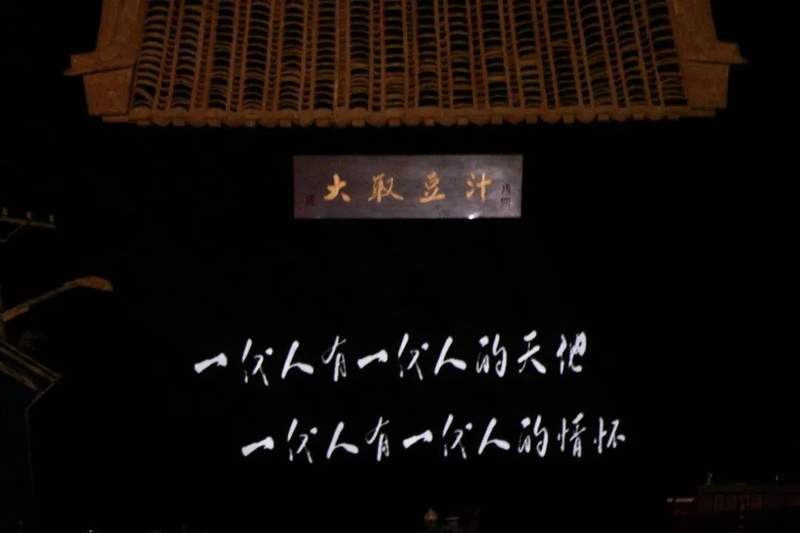 大取豆汁
一代人有一代人的天地
一代人有一代人的情怀